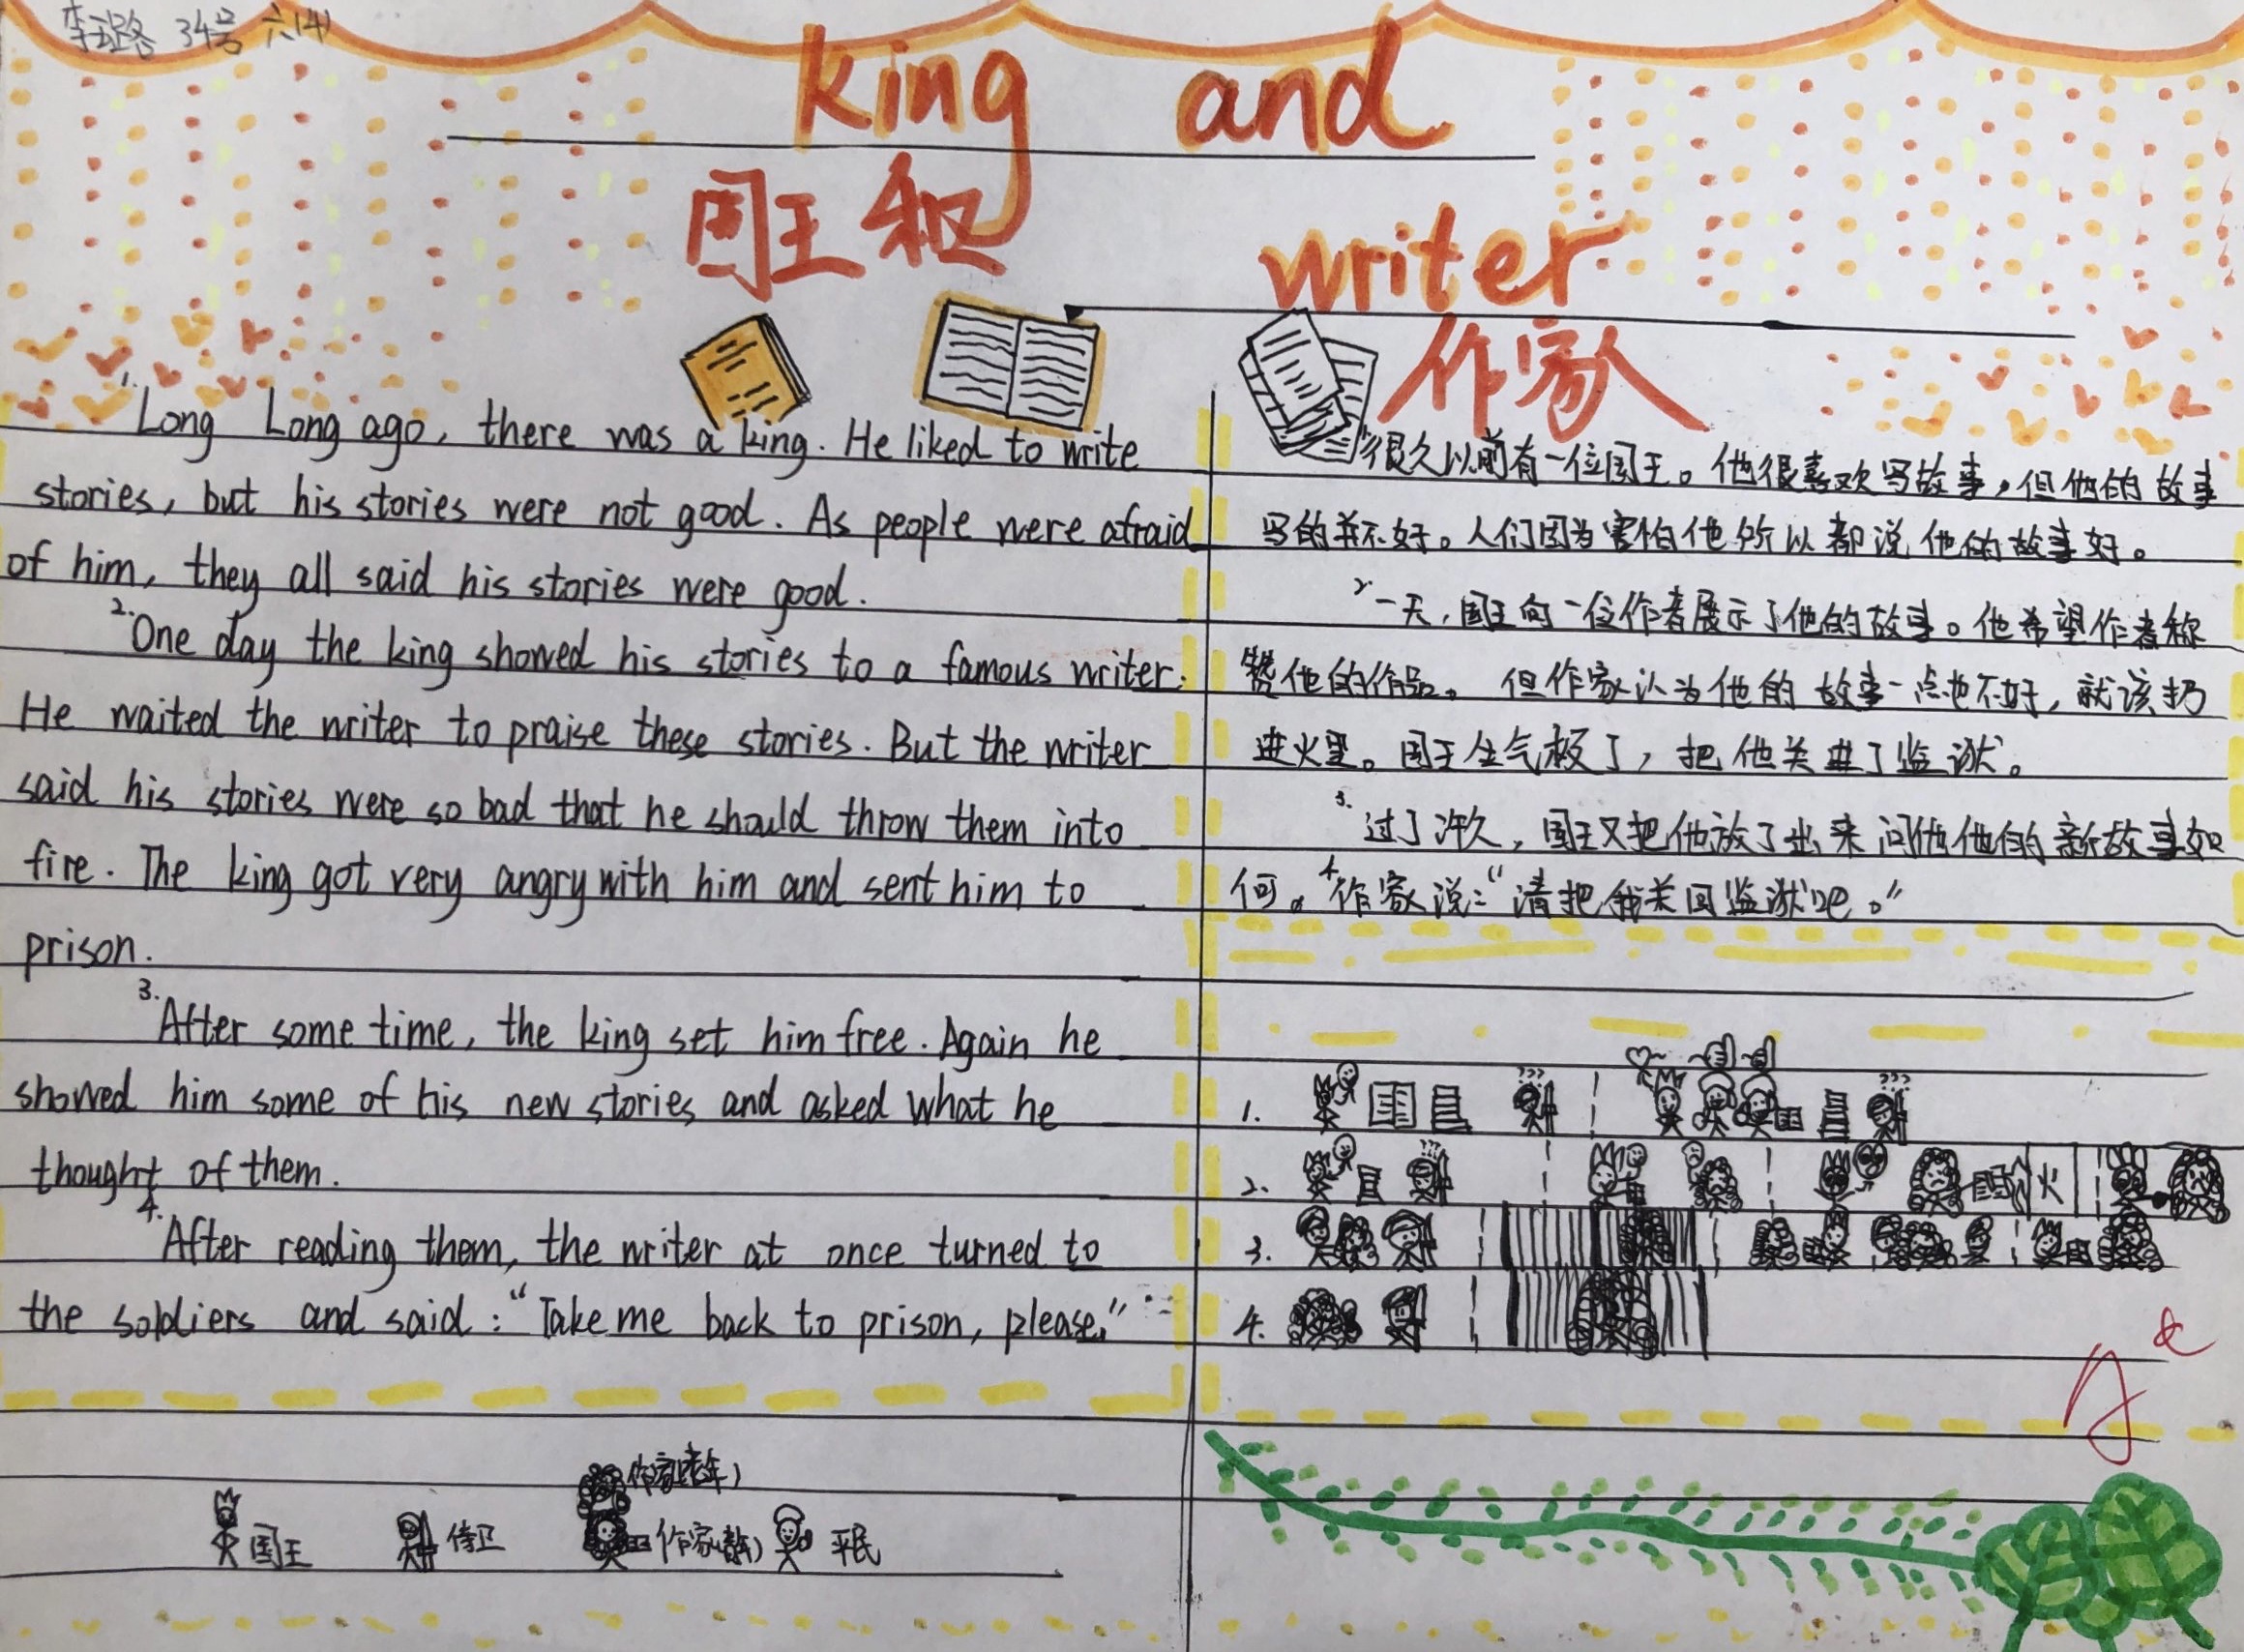 34号 六(4)
king and
国王和
writer
作家
1. Long Long ago, there was a king. He liked to write
stories, but his stories were not good. As people were afraid
of him, they all said his stories were good.
2. One day the king showed his stories to a famous writer.
He waited the writer to praise these stories. But the writer
said his stories were so bad that he should throw them into
fire. The king got very angry with him and sent him to
prison.
3. After some time, the king set him free. Again he
showed him some of his new stories and asked what he
thought of them.
4. After reading them, the writer at once turned to
the soldiers and said: "Take me back to prison, please."
1. 很久以前有一位国王。他很喜欢写故事,但他的故事
写的并不好。人们因为害怕他所以都说他的故事好。
2. 一天,国王向一位作者展示了他的故事。他希望作者称
赞他的作品。但作家认为他的故事一点也不好,就该扔
进火里。国王生气极了,把他关进了监狱。
3. 过了许久,国王又把他放了出来问他他的新故事如
何。4. 作家说:"请把我关回监狱吧。"
1. ??? ???
2. ??? 火
3.
4.
A
作家(老年)
国王 侍卫 作家 平民